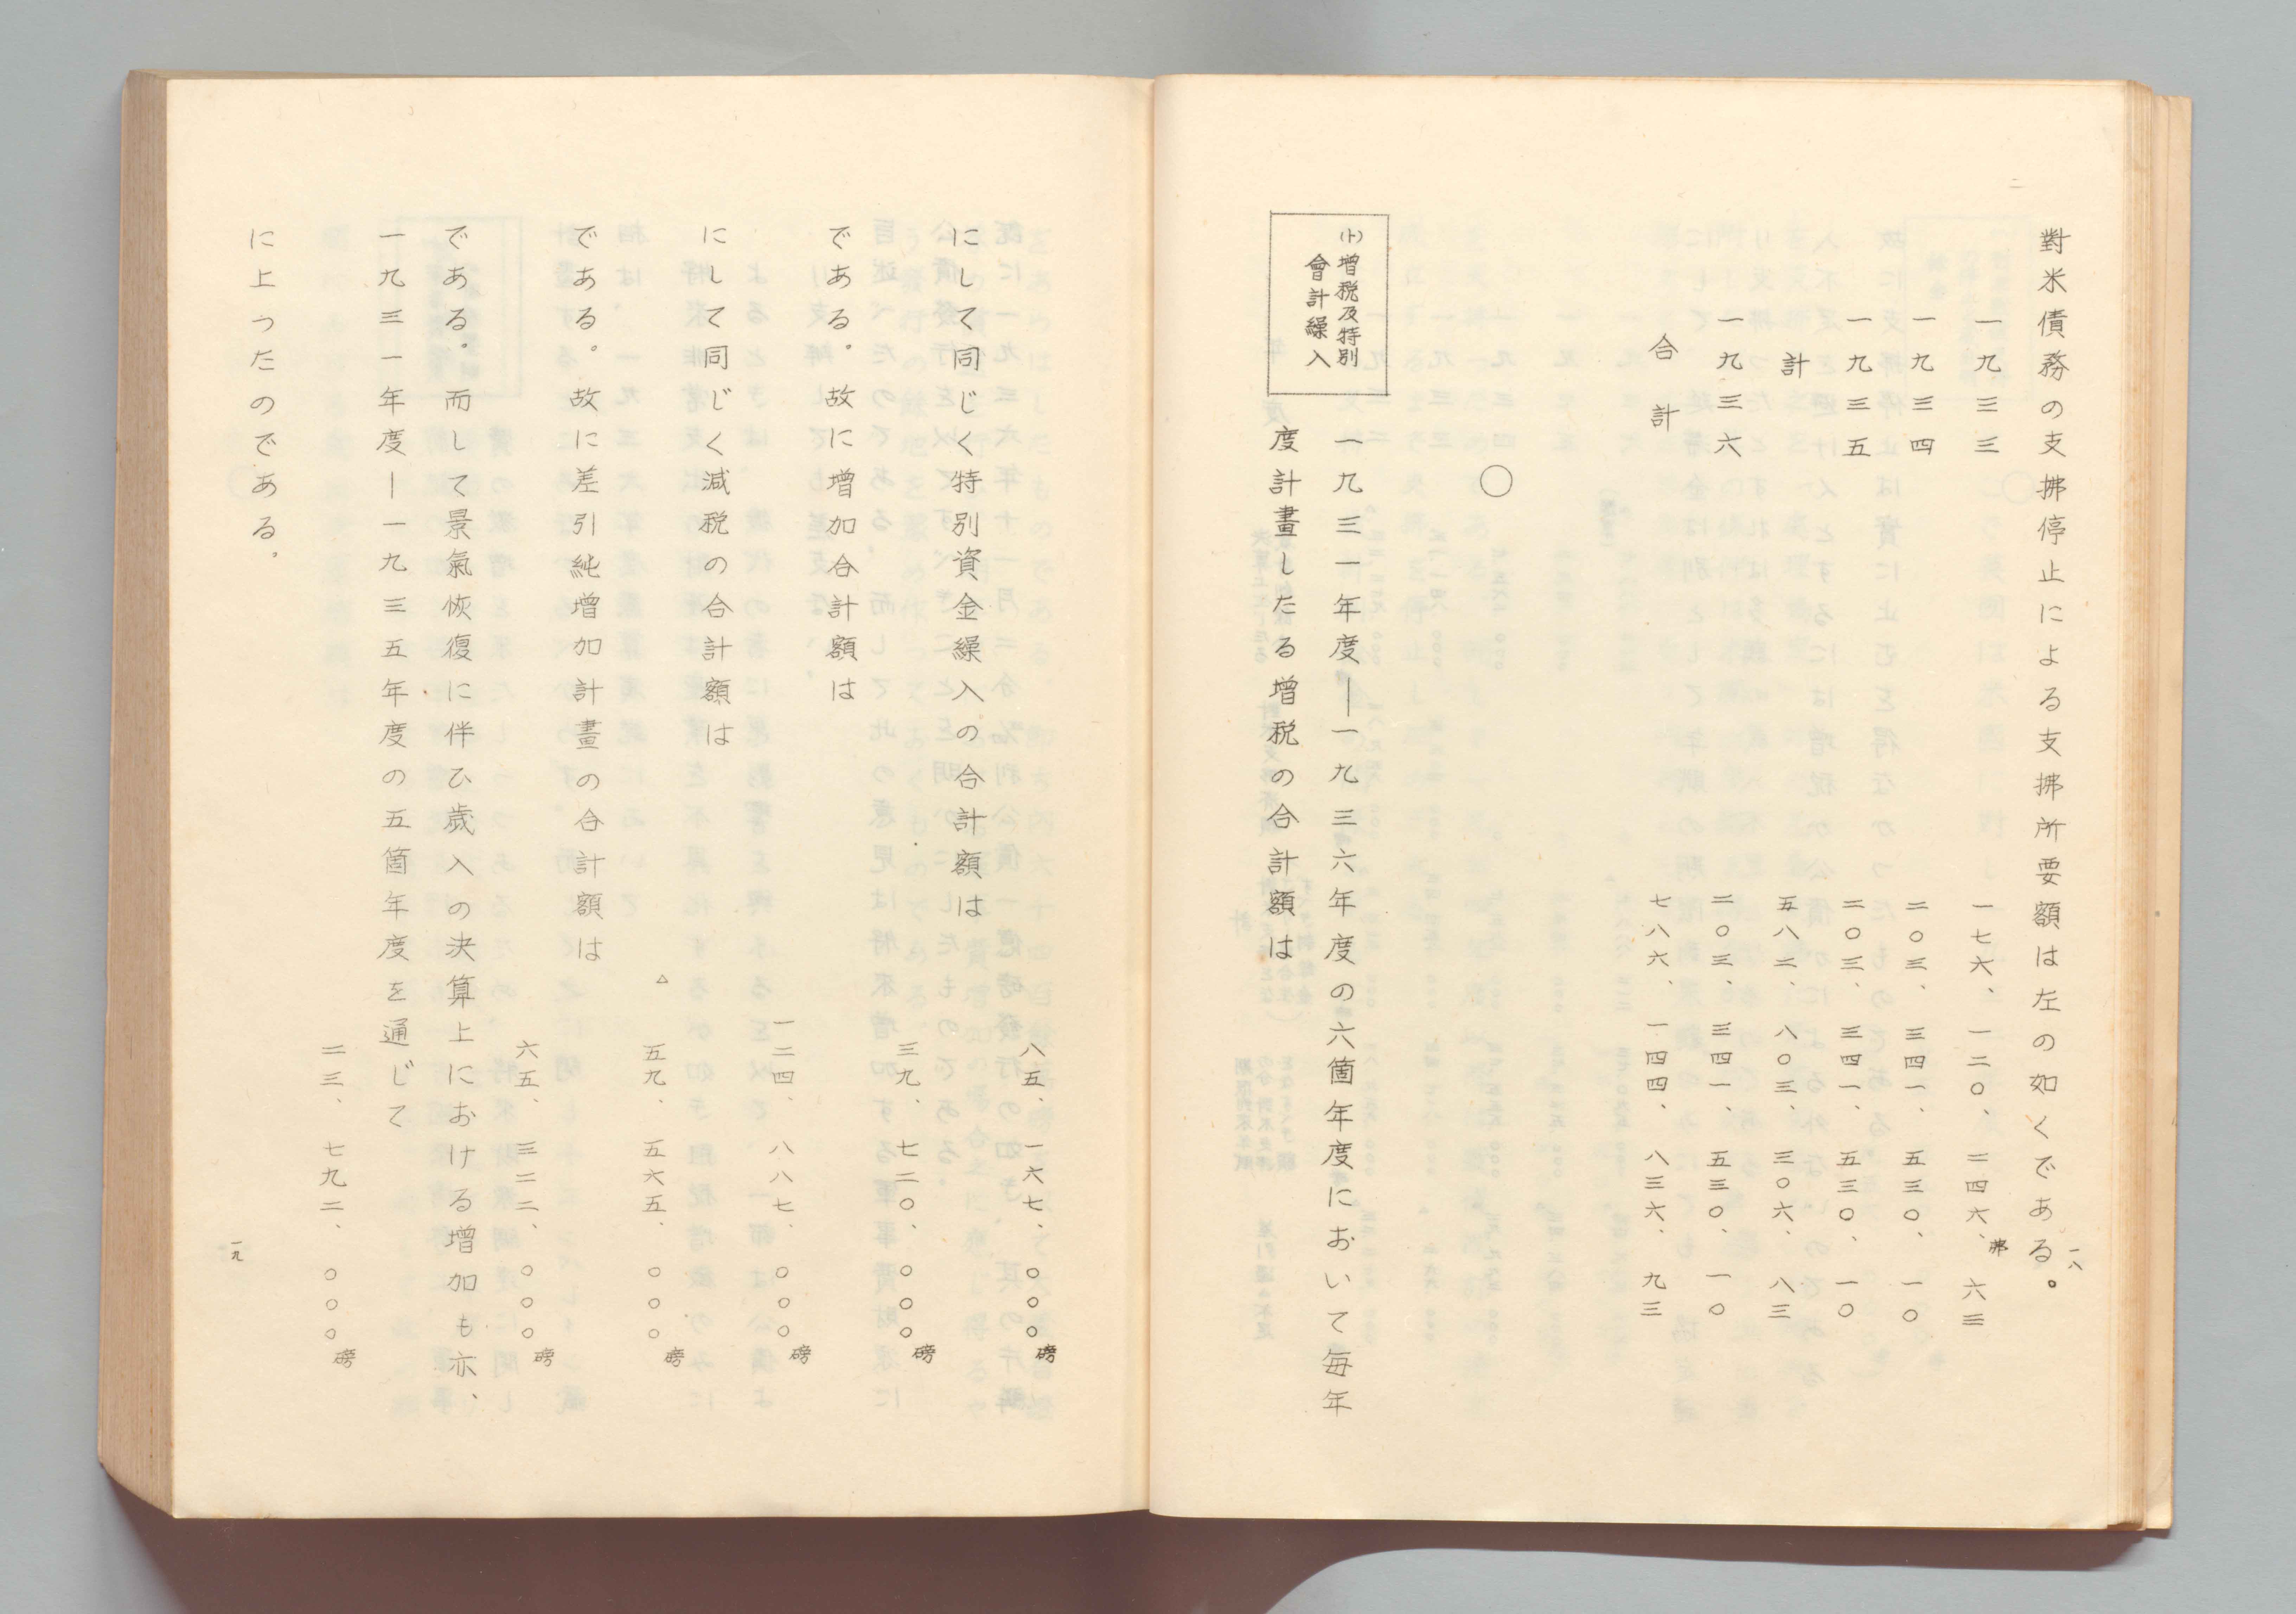 一八
對米債務の支拂停止による支拂所要額は左の如くである。
一九三三　一七六、一二〇、二四六、六三弗
一九三四　二〇三、三四一、五三〇、一〇
一九三五　二〇三、三四一、五三〇、一〇
計　五八二、八〇三、三〇六、八三
一九三六　二〇三、三四一、五三〇、一〇
合計　七八六、一四四、八三六、九三
○
(ト)增税及特別
會計繰入
一九三一年度―一九三六年度の六箇年度において毎年
度計畫したる增税の合計額は
八五、一六七、〇〇〇磅
にして同じく特別資金繰入の合計額は
三九、七二〇、〇〇〇磅
である。故に增加合計額は
一二四、八八七、〇〇〇磅
にして同じく減税の合計額は
△五九、五六五、〇〇〇磅
である。故に差引純增加計畫の合計額は
六五、三二二、〇〇〇磅
である。而して景氣恢復に伴ひ歳入の決算上における增加も亦、
一九三一年度―一九三五年度の五箇年度を通じて
二三、七九二、〇〇〇磅
に上つたのである。
一九